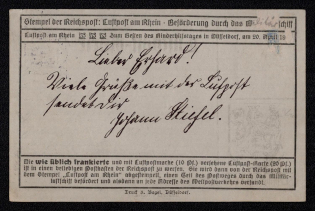 Stempel der Reichspost: Luftpost am Rhein - Beförderung durch das
Luftpost am Rhein Zum Besten des Kinderhilfstages in Düsseldorf, am 20. April
Lieber Erhard!
Viele Grüße mit der Luftpost
sendet Dir
Johann Stiefel.
Die wie üblich frankierte und mit Luftpostmarke (10 Pf.) versehene Luftpost-Karte (25 Pf.)
ist in einen beliebigen Postkasten der Reichspost zu werfen. Sie wird dann von der Reichspost mit
dem Stempel „Luftpost am Rhein" abgestempelt, einen Teil des Postweges durch das Militär-
luftschiff befördert und alsdann an jede Adresse des Weltpostverkehrs vermittelt.
Druck A. Bagel, Düsseldorf.